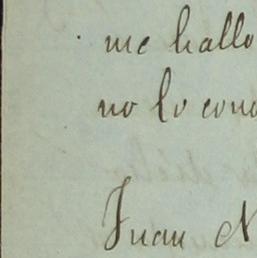 me hallo
no lo cono
Juan N